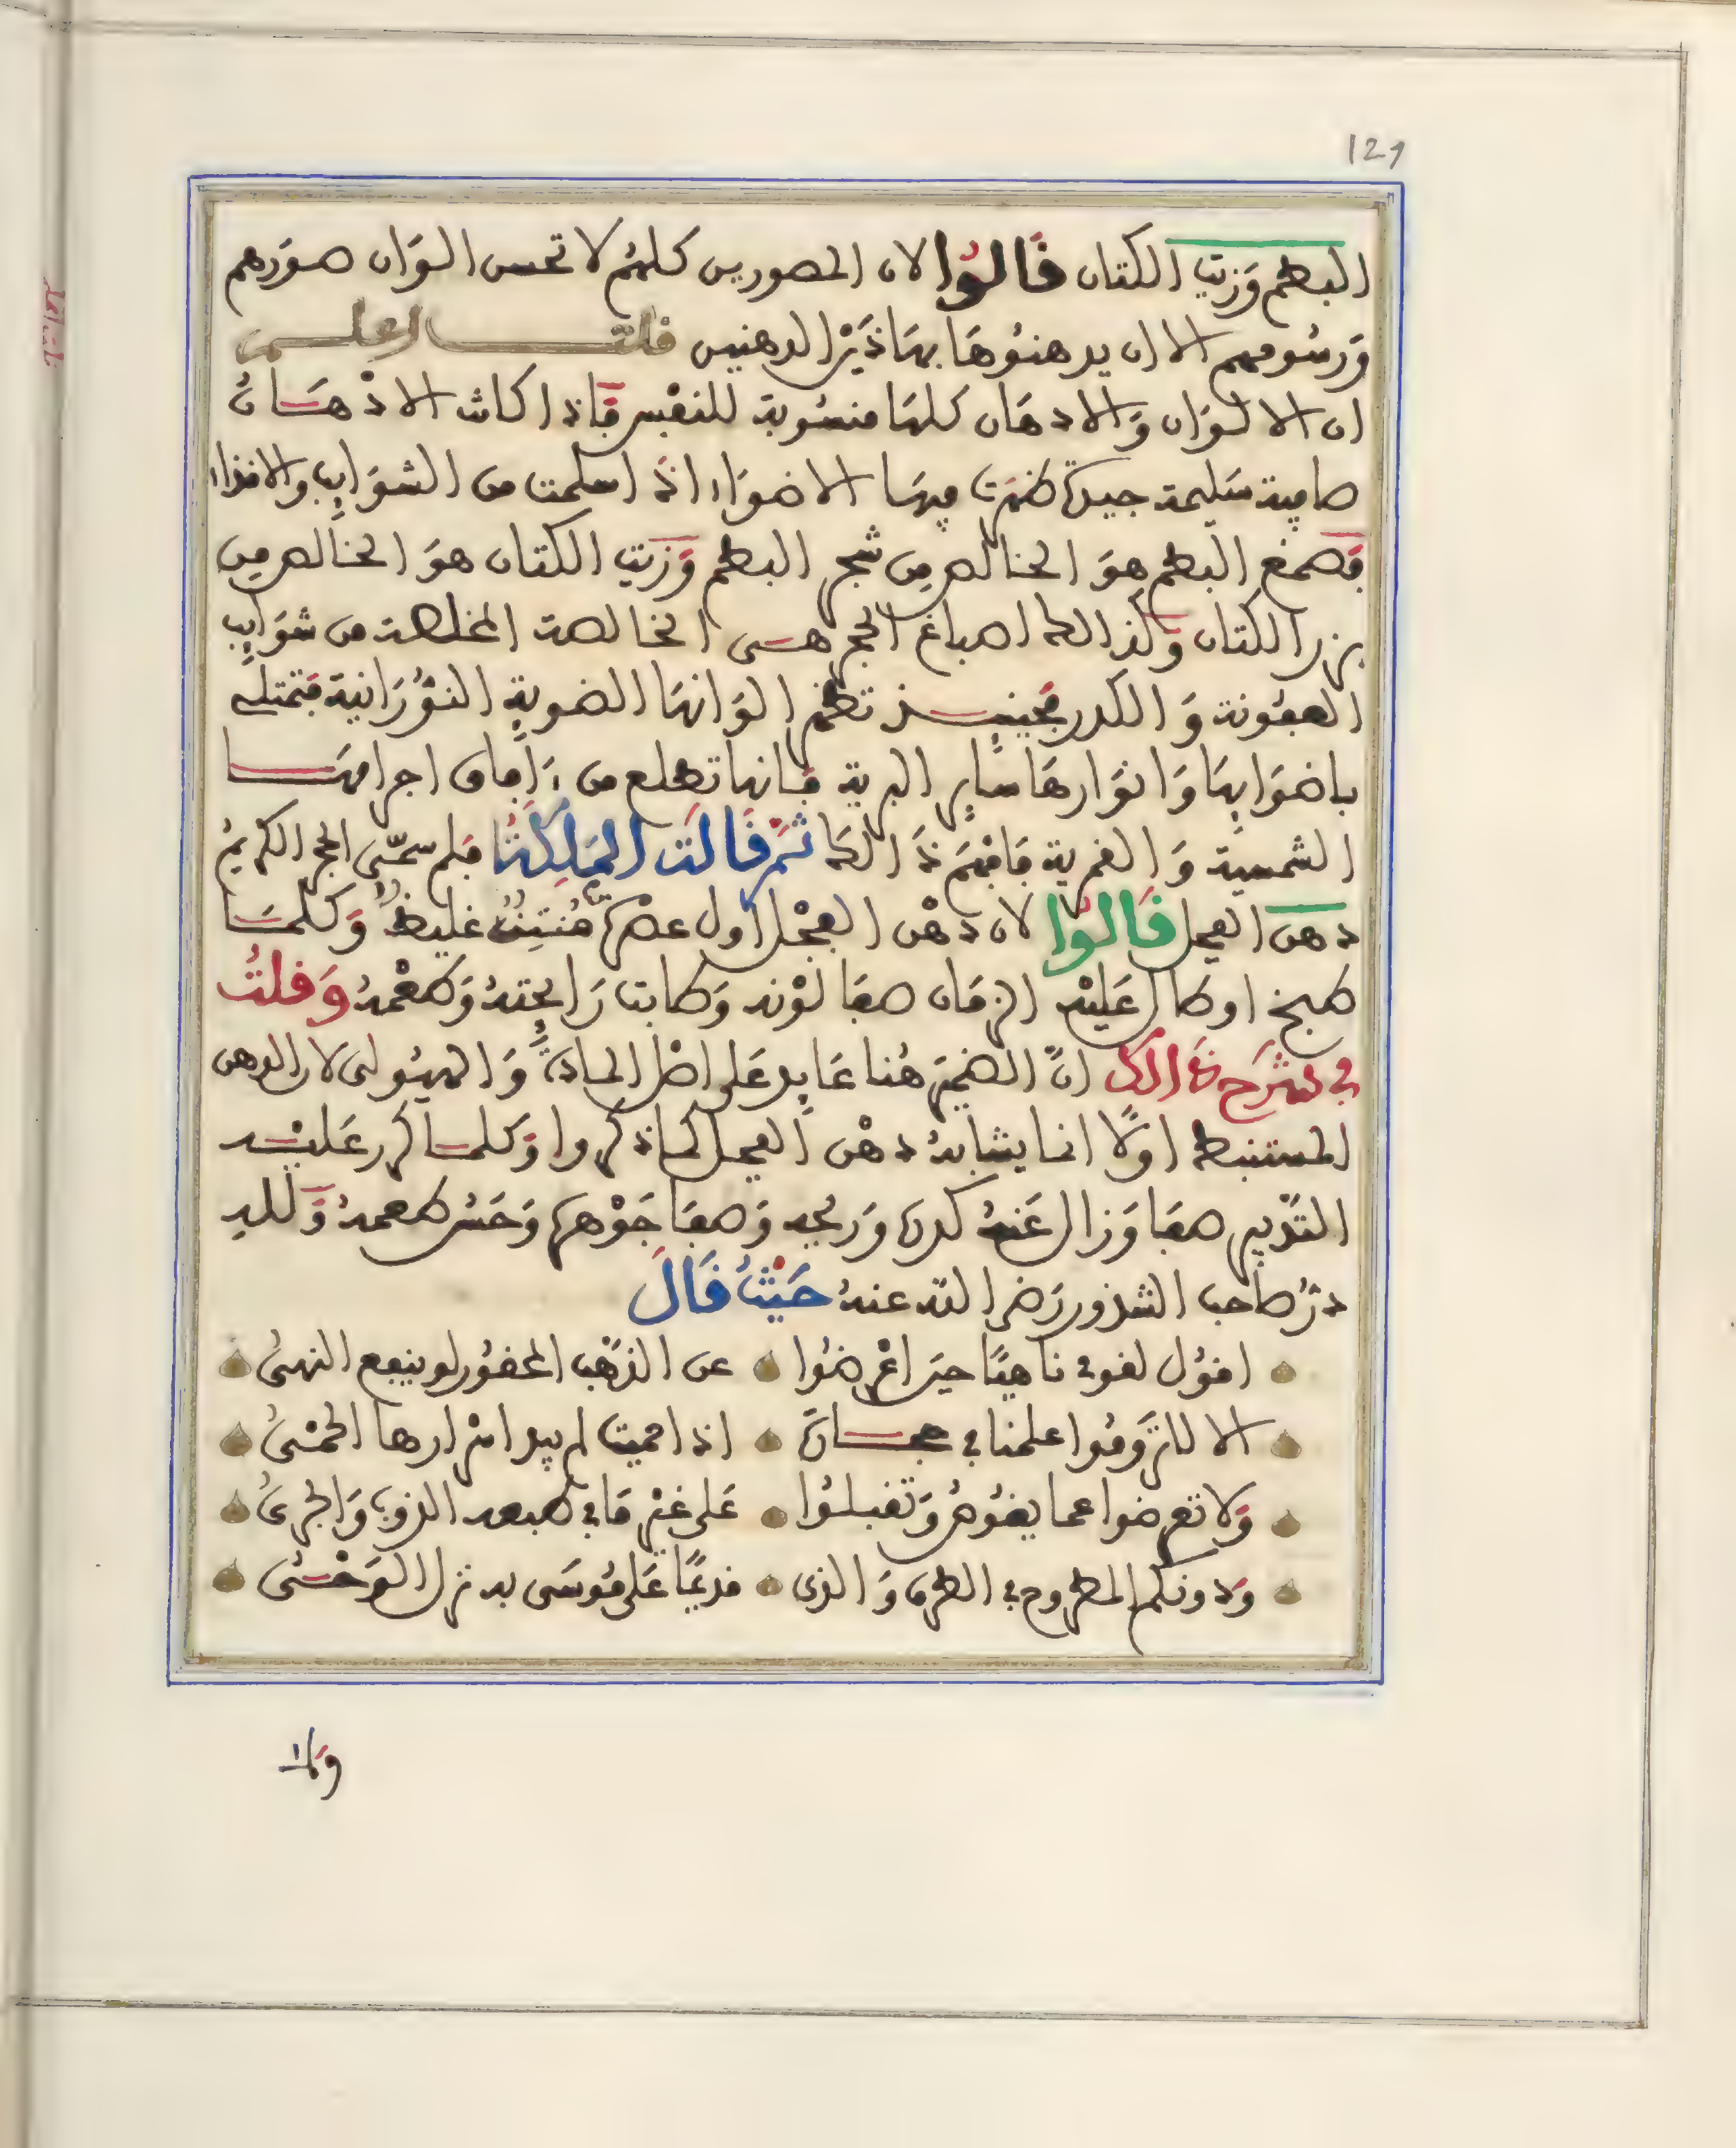 129
البطم وَزيت الكتان قَالُوا لان المصورين كلهُم لا تحسن الوَان صوَرهم
وَرسُومهم الا ان يدهنوُهَا بهَاذَيْن الدهنين قلت اعلم
ان الالوَان وَالادهَان كلهَا منسُوبة للنفس فَاذا كانت الادْهَانُ
صافية سَليمة جيدة ظهرَت فيهَا الاضوَاء اذَا سلمت من الشوَايب والاقذاء
فَصمغ البطم هوَ الخالص من شجر البطم وَزيت الكتان هوَ الخالص من
بزر الكتان وَكذالك اصباغ الحجر هى الخالصة المخلصة من شوَايب
العفونة وَالكدر فحينيذ تظهر الوَانهَا الضوية النوُرَانية فتمتلى
باضوَايهَا وَانوَارهَا ساير البرية فَانها تطلع من ءَافاق اجرامهَا
الشمسية وَالقمرية فَافهَم ذَالك ثمَ قَالَت المَلِكَةُ فلم سمّى الحجر الكريمُ
دهن العجل قَالوُا لان دهْن العجْل اول عصره مُنتِنٌ غليظٌ وَكلمَا
طبخ اوطال عَليْه الزمَان صفَا لوْنه وَطابت رَايحتهُ وَطعْمهُ وَقلتُ
في شرَح ذَالك انَّ الضميَر هُنا عَايد عَلى اصْل المادةِ وَالهيُولى لان الدهن
المستنبط اوَلًا انما يشابهُ دهْن العجل كماذكروا وَكلما كرر عَليْه
التدْبير صفَا وَزال عَنهُ كدره وَريحه وَصفَا جَوْهره وَحَسُن طعمهُ وَلله
درُّ صَاحب الشذور رَضى اللّه عنهُ حَيْثُ قَالَ
اقوُل لقومى ناهيًا حيَن اعْرضُوا عن الذهَب المحقوُر لو ينفع النهىُ
الا لاترَومُوا علمنا فى حجارة اذا حميت لم يبد اسْرارها الحمْىُ
وَلا تعرضوا عما يقوُمُ وَتقبلوُا عَلى غيْر مَا فى طبعه الذوب وَالجرىُ
وَدونكم المطروح فى الطرق وَالذى قديمًا عَلى مُوسَى به نزل الوَحْىُ
وَلا